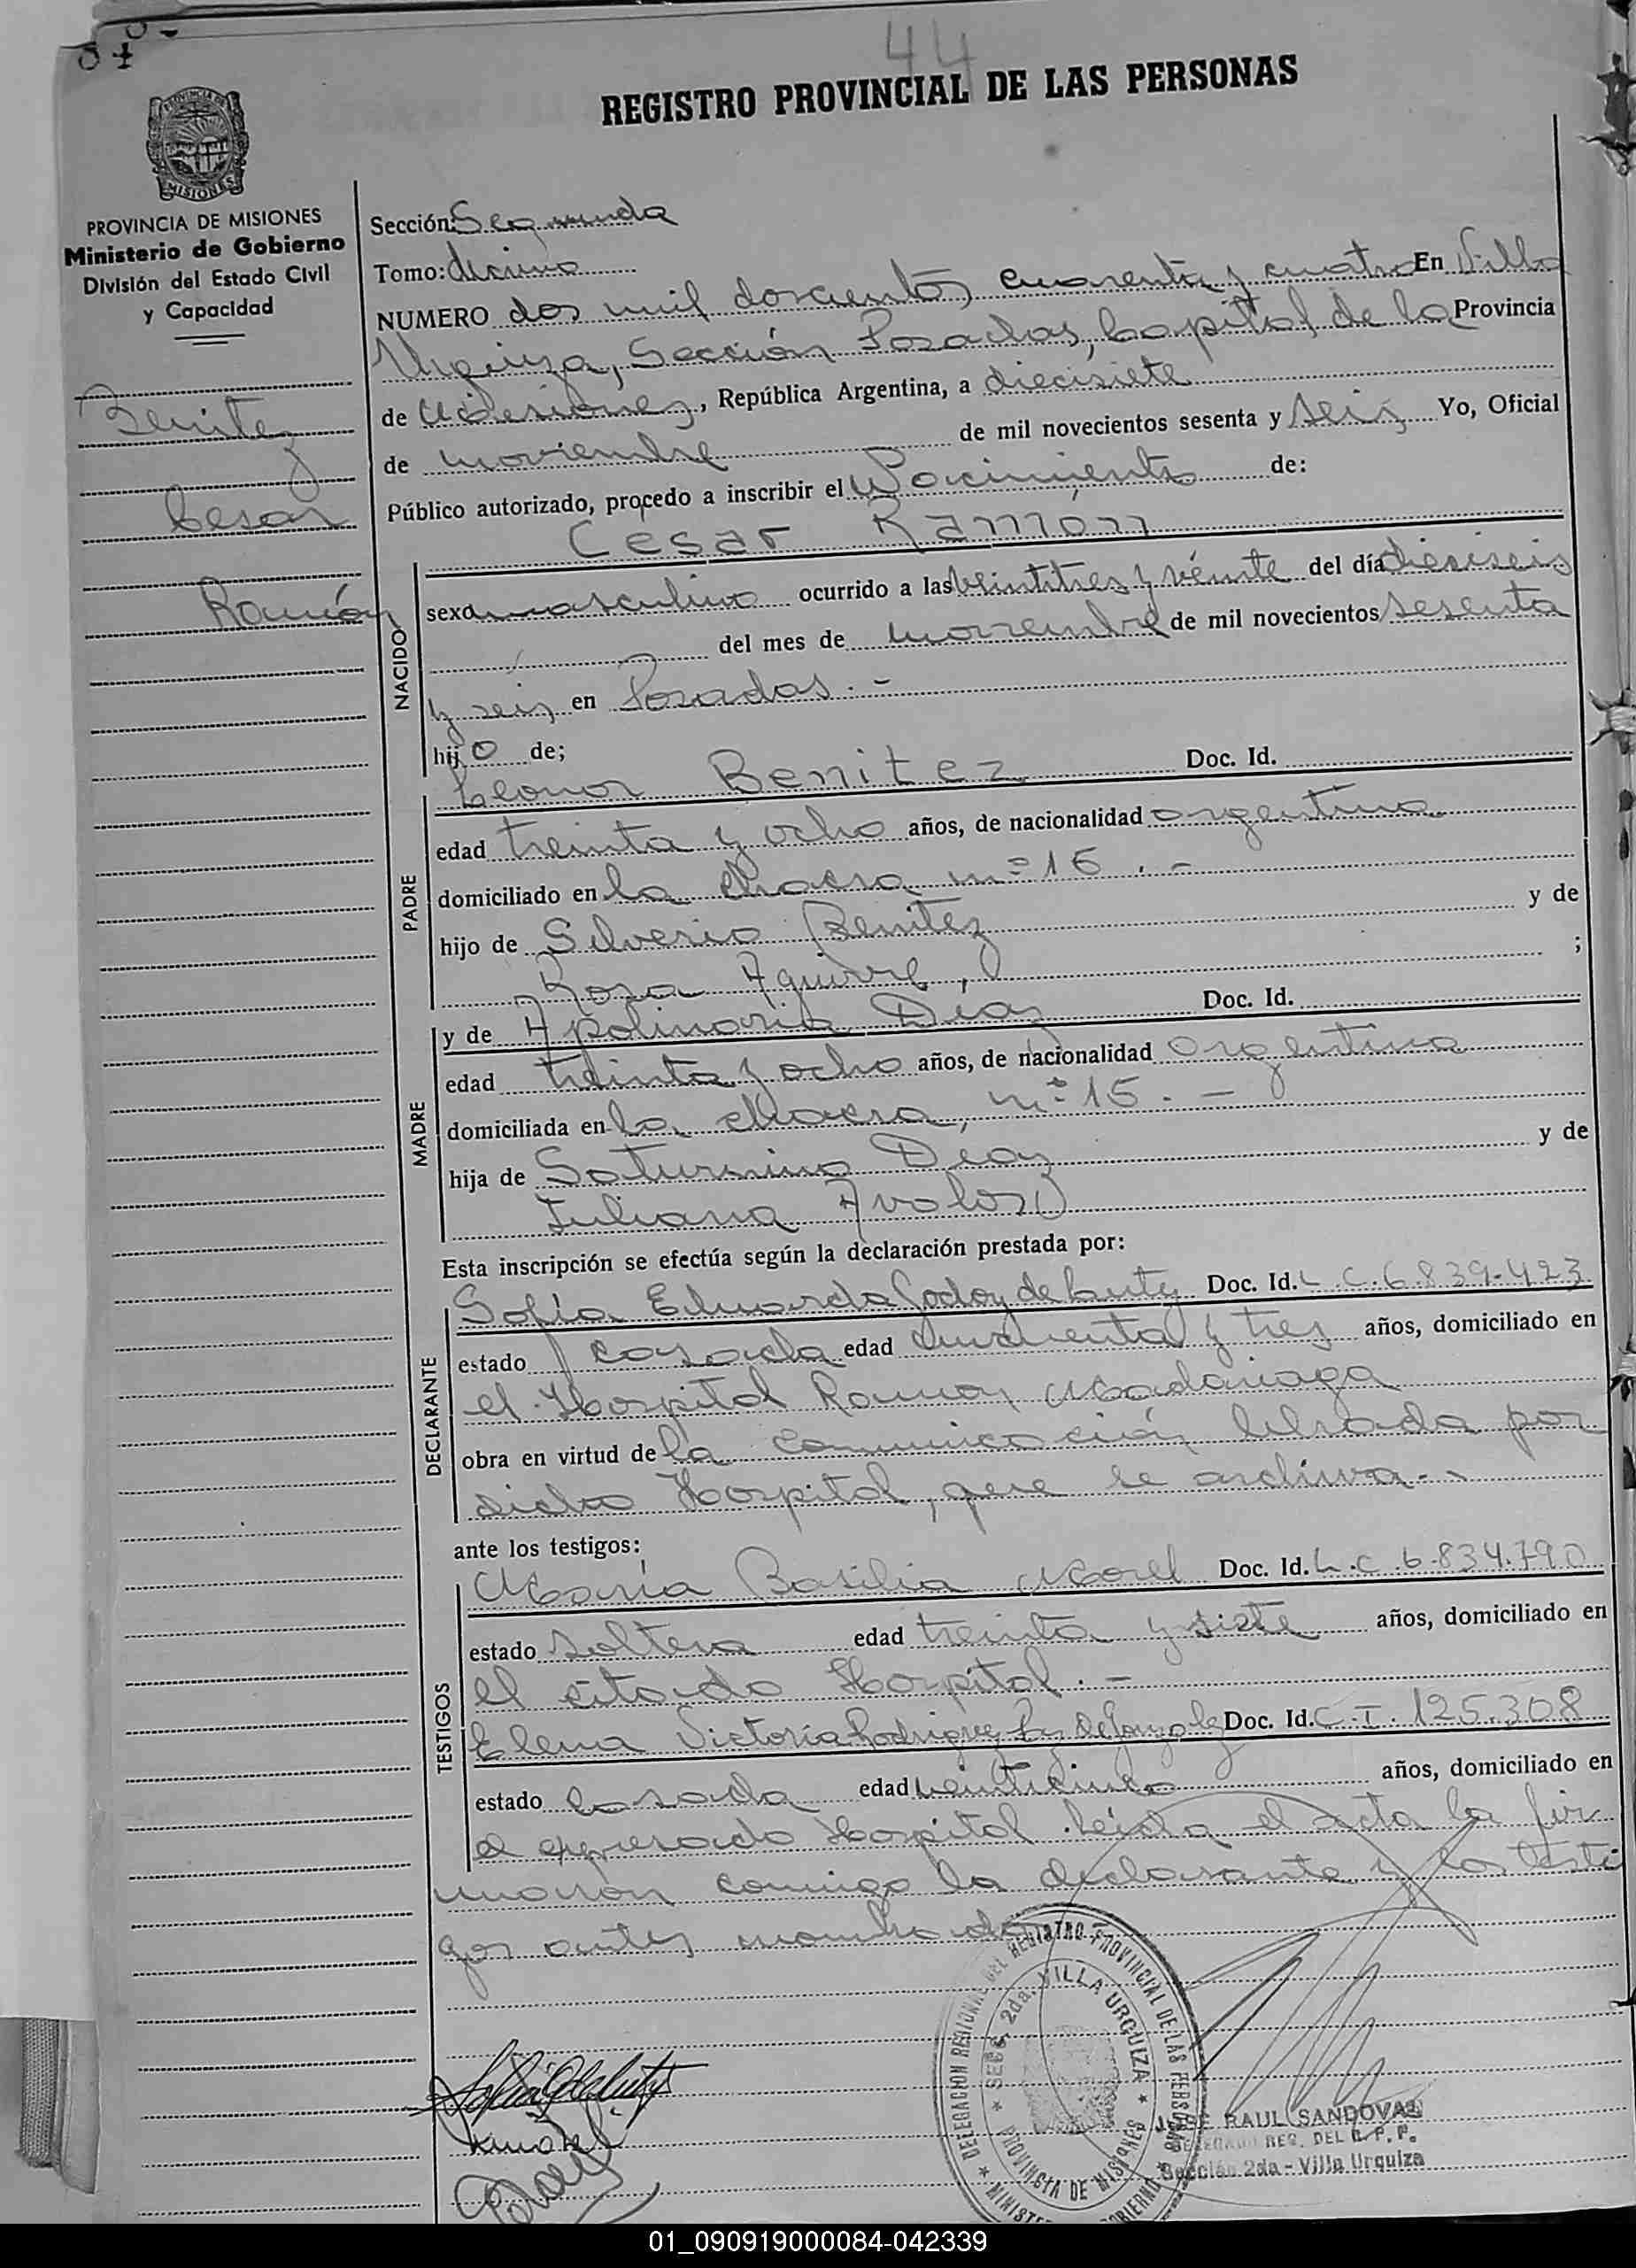 44
REGISTRO PROVINCIAL DE LAS PERSONAS
MISIONES
PROVINCIA DE MISIONES
Ministerio de Gobierno
División del Estado Civil
y Capacidad
Benitez
Cesar
Ramón
Sección: Segunda
Tomo: décimo
NUMERO dos mil doscientos cuarenta y cuatro En Villa
Urquiza, Sección Posadas, Capital de la Provincia
de Misiones, República Argentina, a diecisiete
de noviembre de mil novecientos sesenta y seis Yo, Oficial
Público autorizado, procedo a inscribir el Nacimiento de:
Cesar Ramón
NACIDO
sexo masculino ocurrido a las veintitres y veinte del día dieciseis
del mes de noviembre de mil novecientos sesenta
y seis en Posadas.-
hijo de;
PADRE
Leonor Benitez Doc. Id.
edad treinta y ocho años, de nacionalidad argentina
domiciliado en la chacra nº 15.-
hijo de Silverio Benitez y de
Rosa Aguirre, ;
MADRE
y de Apolinaria Diaz Doc. Id.
edad treinta y ocho años, de nacionalidad argentina
domiciliada en la chacra, nº 15.-
hija de Saturnino Diaz y de
Juliana Avalos
Esta inscripción se efectúa según la declaración prestada por:
DECLARANTE
Sofía Eduarda Godoy de Doc. Id. L.C. 6.839.423
estado casada edad cincuenta y tres años, domiciliado en
el Hospital Ramon Madariaga
obra en virtud de la comunicación librada por
dicho Hospital, que se archiva.-
ante los testigos:
TESTIGOS
María Basilia Morel Doc. Id. L.C. 6.834.790
estado soltera edad treinta y siete años, domiciliado en
el citado Hospital.-
Elena Victoria Rodriguez De Gonzalez Doc. Id. C.I. 125.308
estado casada edad veinticinco años, domiciliado en
el expresado Hospital leída el acta la fir
maron conmigo la declarante y los testi
gos antes
DELEGACION REGIONAL DEL REGISTRO PROVINCIAL DE LAS PERSONAS
SECC. 2da. VILLA URQUIZA
PROVINCIA DE MISIONES
JOSE RAUL SANDOVAL
DELEGADO REG. DEL R.P.P.
Sección 2da - Villa Urquiza
01_090919000084-042339